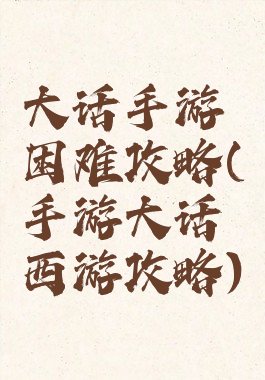 大话手游
困难攻略(
手游大话
西游攻略)